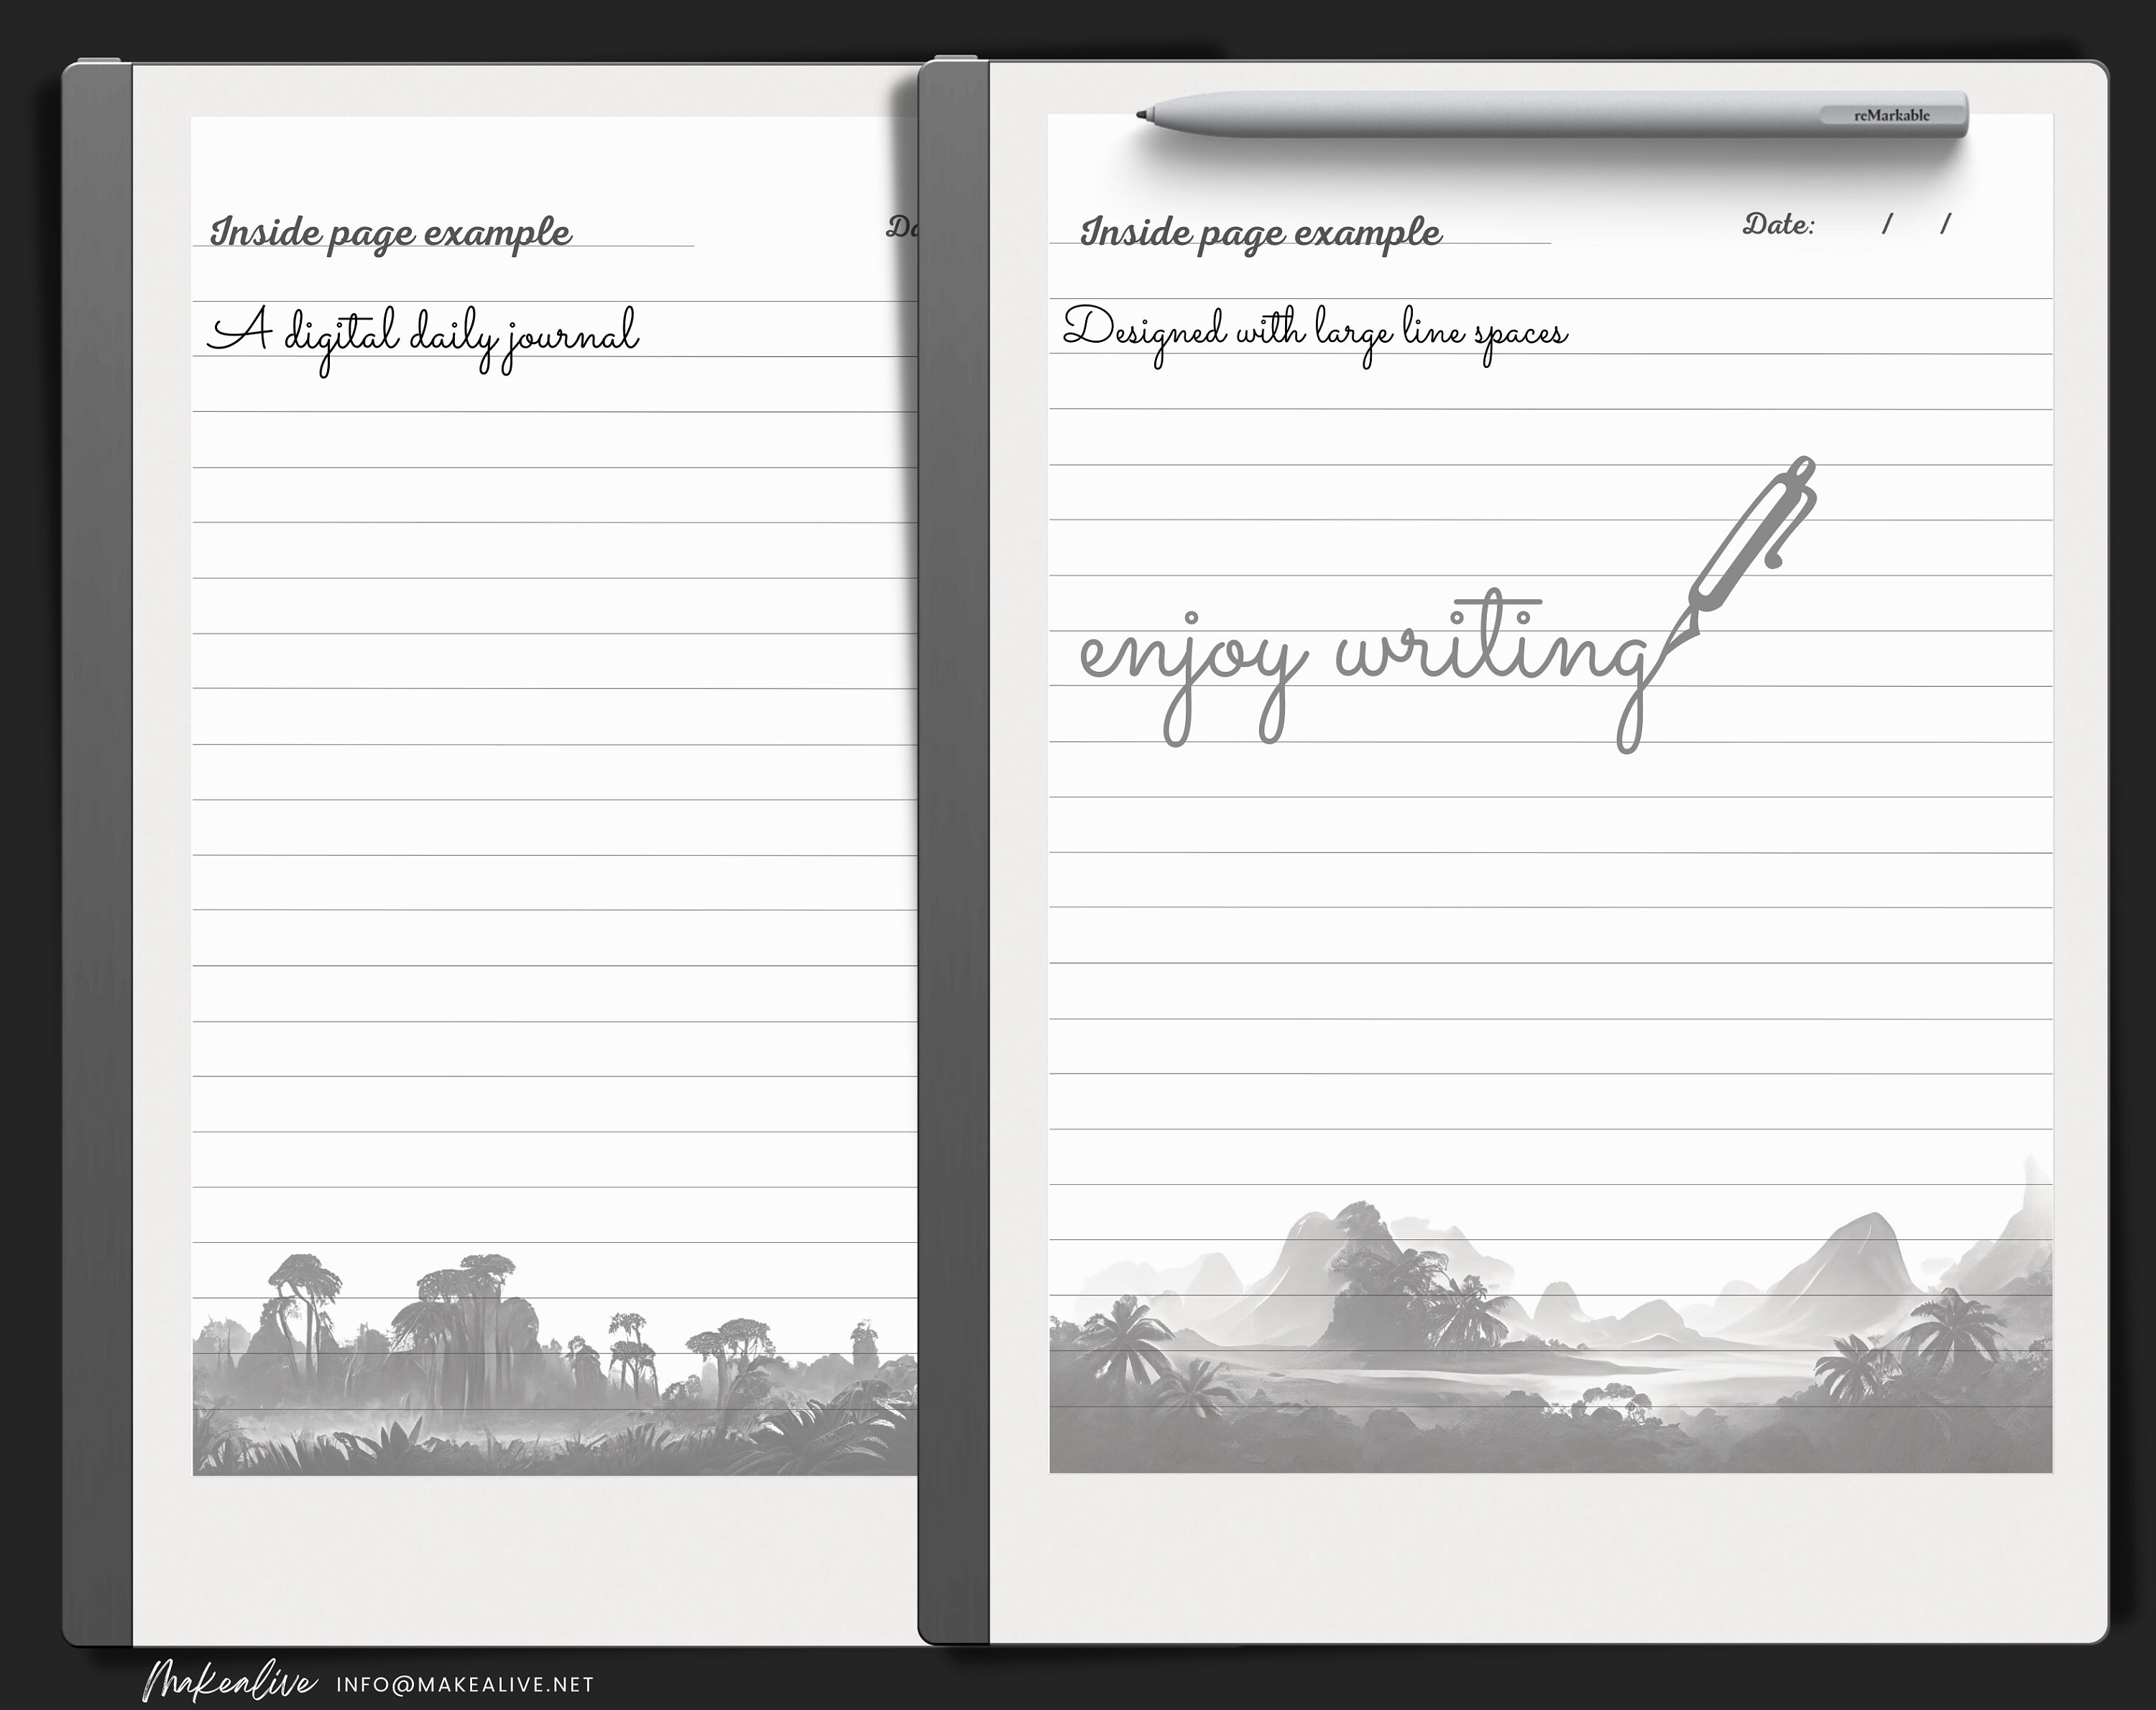 Inside page example
A digital daily journal
reMarkable
Inside page example
Date: / /
Designed with large line spaces
enjoy writing
Makealive INFO@MAKEALIVE.NET